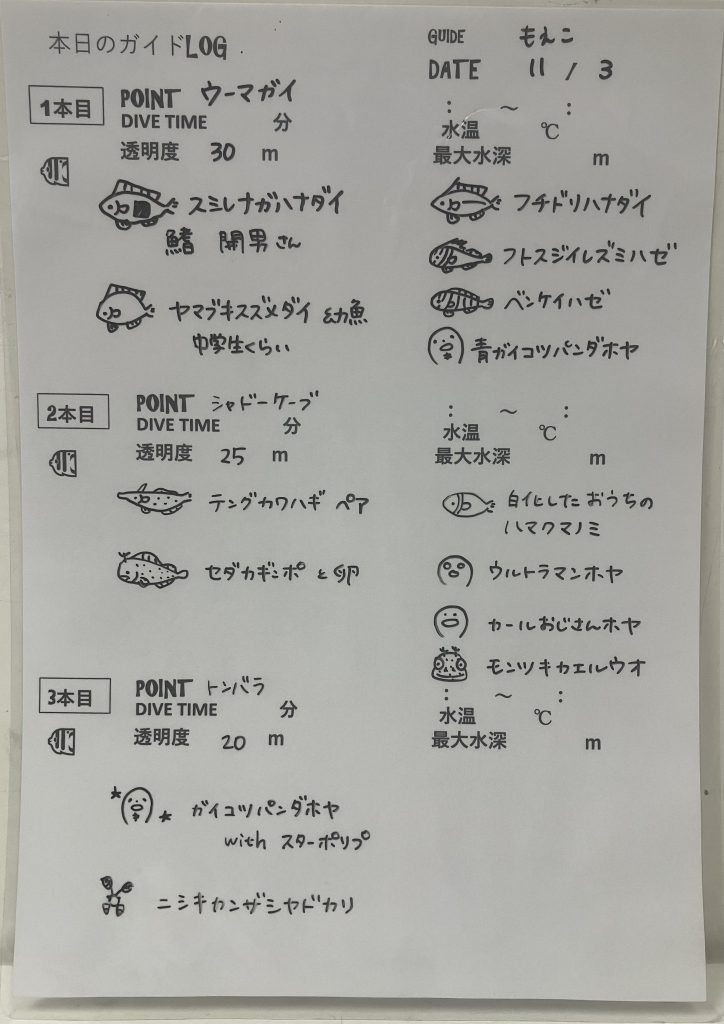 本日のガイドLOG
GUIDE もえこ
DATE 11 / 3
1本目 POINT ウーマガイ
DIVE TIME 分
透明度 30 m
: ～ :
水温 ℃
最大水深 m
スミレナガハナダイ
鰭 開男さん
ヤマブキスズメダイ 幼魚
中学生くらい
フチドリハナダイ
フトスジイレズミハゼ
ベンケイハゼ
青ガイコツパンダホヤ
2本目 POINT シャドーケーブ
DIVE TIME 分
透明度 25 m
: ～ :
水温 ℃
最大水深 m
テングカワハギ ペア
セダカギンポ と 卵
白化したおうちの
ハマクマノミ
ウルトラマンホヤ
カールおじさんホヤ
モンツキカエルウオ
3本目 POINT トンバラ
DIVE TIME 分
透明度 20 m
: ～ :
水温 ℃
最大水深 m
ガイコツパンダホヤ
with スターポリプ
ニシキカンザシヤドカリ